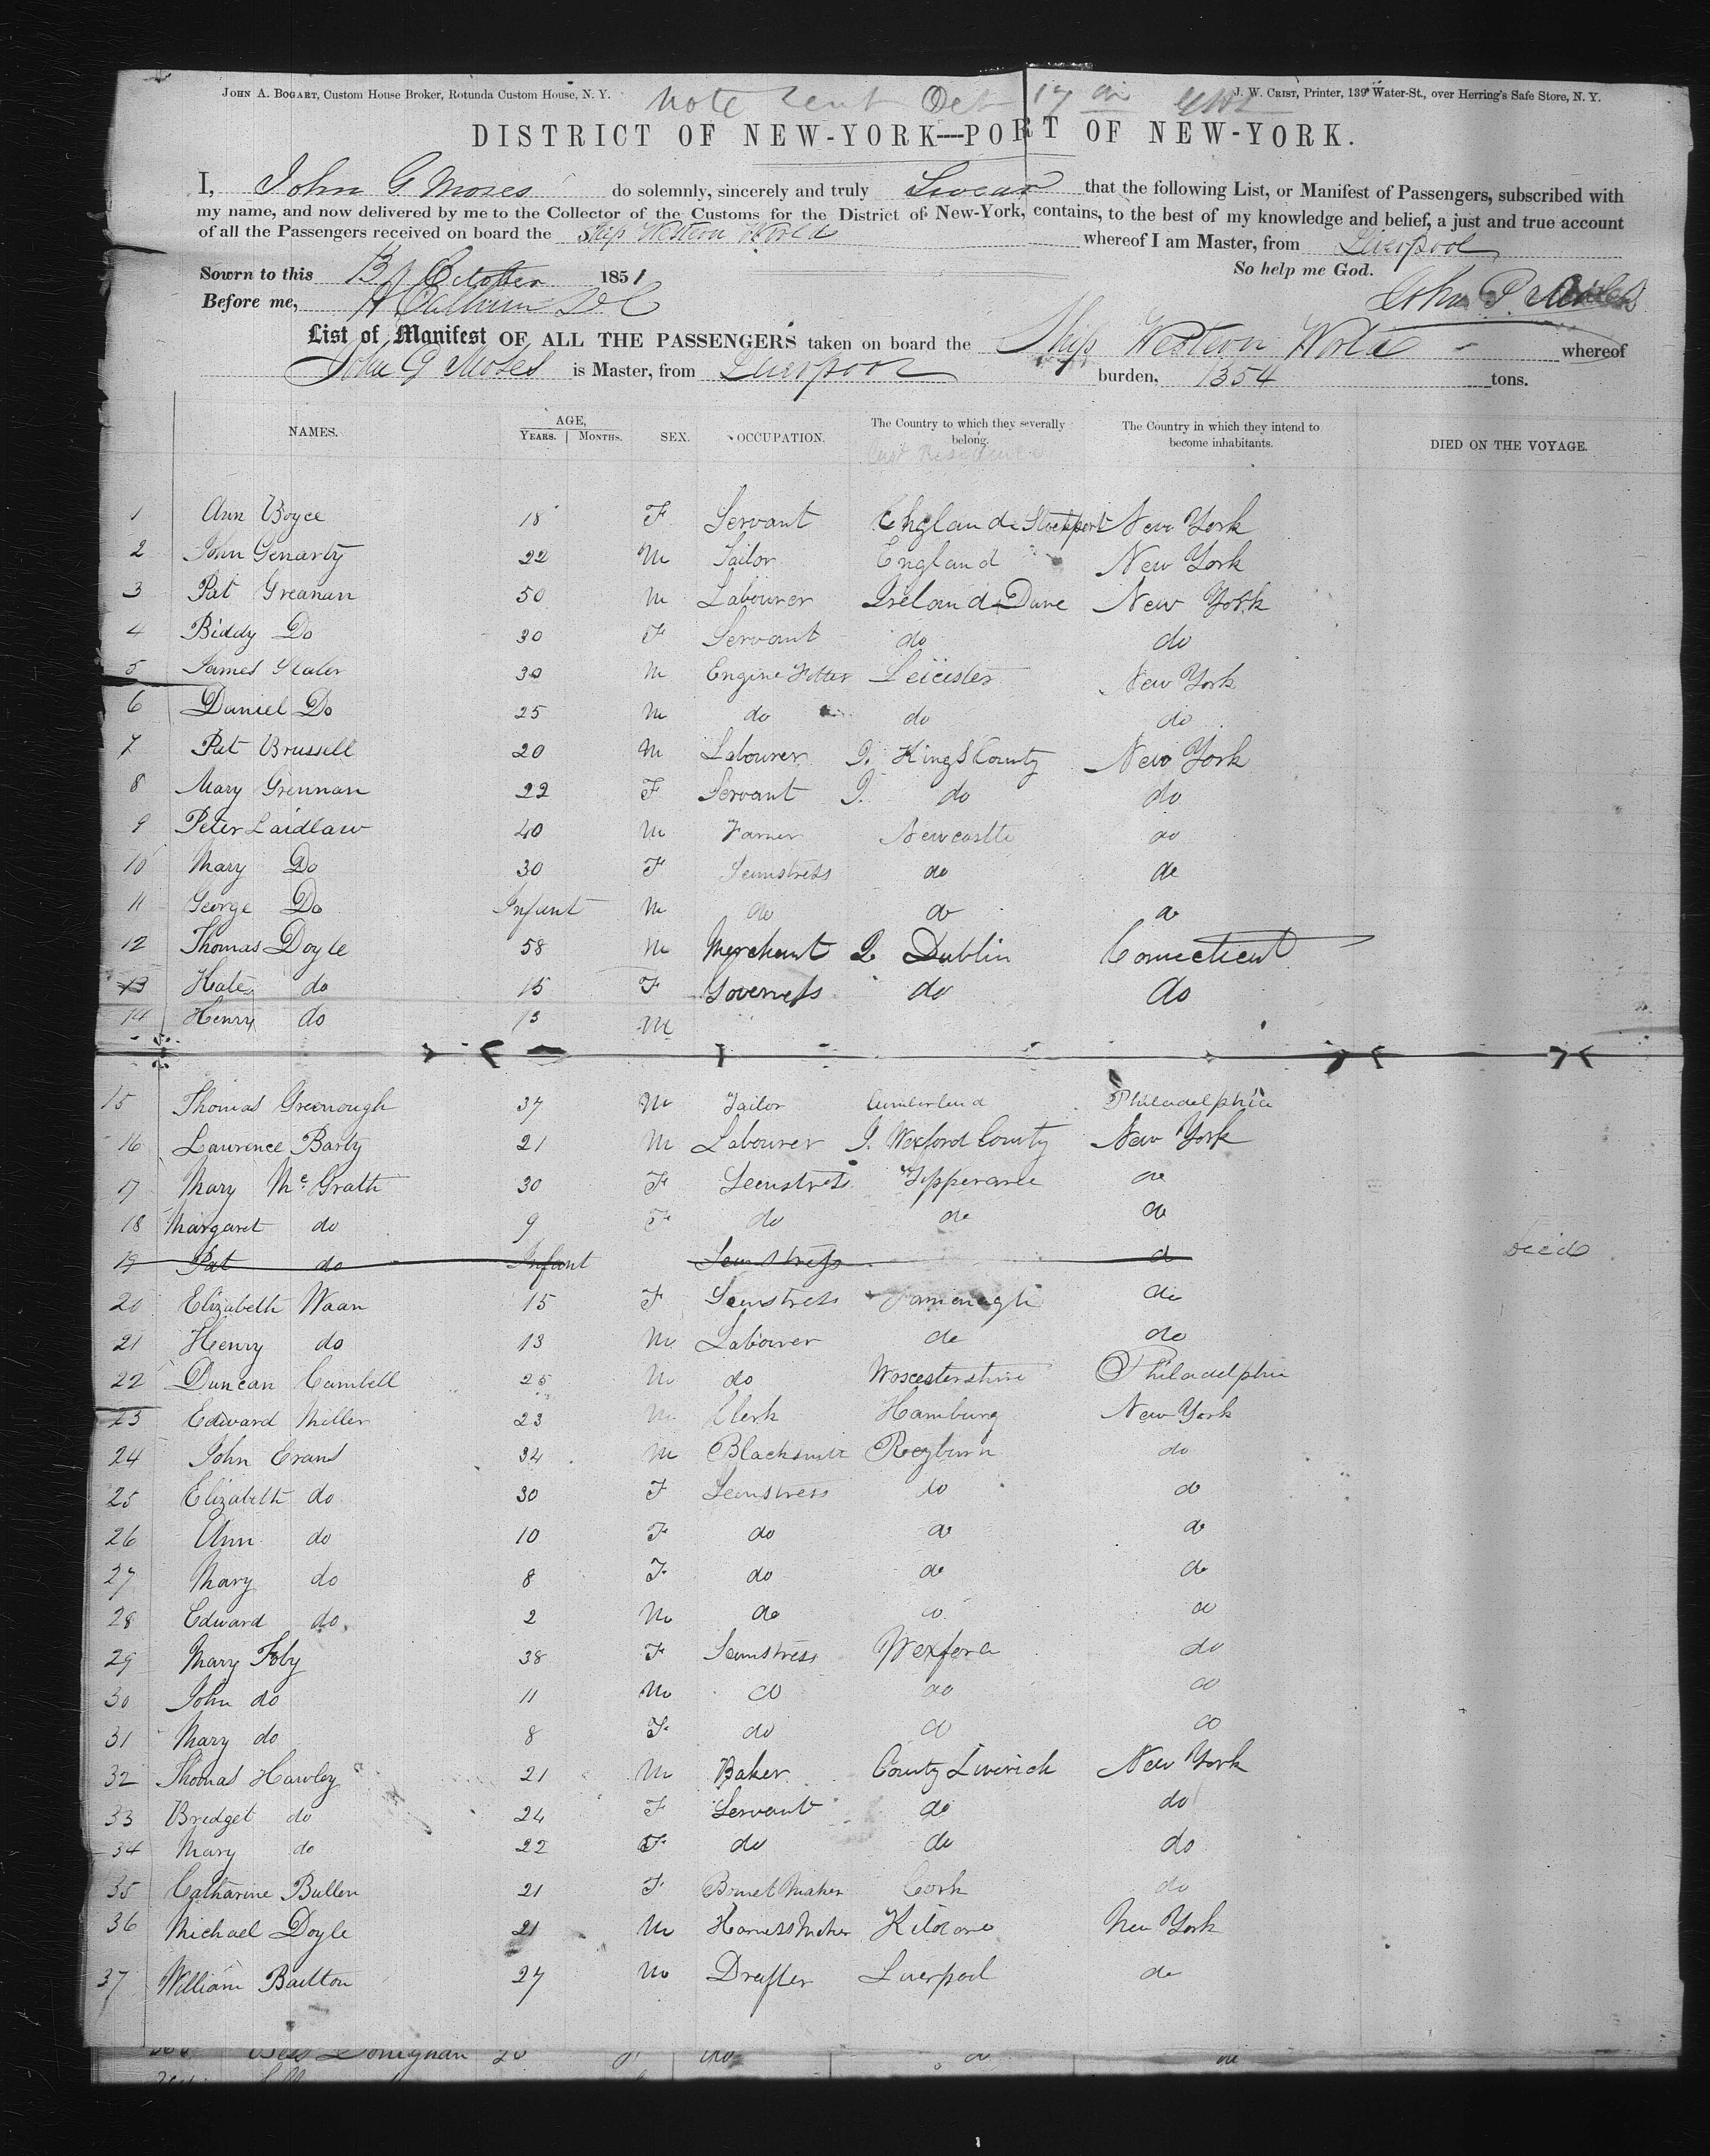 JOHN A. BOGART, Custom House Broker, Rotunda Custom House, N. Y.
Note Oct 17
J. W. CRIST, Printer, 139 Water-St., over Herring's Safe Store, N. Y.
DISTRICT OF NEW-YORK—PORT OF NEW-YORK.
I, John G Moses do solemnly, sincerely and truly Swear that the following List, or Manifest of Passengers, subscribed with
my name, and now delivered by me to the Collector of the Customs for the District of New-York, contains, to the best of my knowledge and belief, a just and true account
of all the Passengers received on board the Ship Western World whereof I am Master, from Liverpool
Sowrn to this 13 October 1851 So help me God.
Before me, John
List of Manifest OF ALL THE PASSENGERS taken on board the Ship Western World whereof
John G Moses is Master, from Liverpool burden, 1354 tons.
NAMES. AGE, YEARS. MONTHS. SEX. OCCUPATION. The Country to which they severally belong. The Country in which they intend to become inhabitants. DIED ON THE VOYAGE.
Last Residence
1 Ann Boyce 18 F Servant England Stockport New York
2 John Genarty 22 M England New York
3 Pat Greanan 50 M Labourer Ireland New York
4 Biddy Do 30 F Servant do do
5 James 30 M Engine Fitter Leicester New York
6 Daniel Do 25 M do do do
7 Pat Brussell 20 M Labourer I. Kings County New York
8 Mary Grennan 22 F Servant I. do do
9 Peter Laidlaw 40 M Farmer Newcastle do
10 Mary Do 30 F Semstress do do
11 George Do Infant M do do do
12 Thomas Doyle 58 M Merchant I Dublin Connecticut
13 Kate do 15 F Governess do do
14 Henry do 13 M
15 Thomas Greenough 37 M Tailor Cumberland Philadelphia
16 Laurence Barty 21 M Labourer I. Wexford County New York
17 Mary McGrath 30 F Semstress Tipperane do
18 Margaret do 9 F do do do
19 Pat do Infant Semstress do Died
20 Elizabeth Waan 15 F Semstress do
21 Henry do 13 M Labourer do do
22 Duncan Cambell 25 M do Worcestershire Philadelphia
23 Edward Miller 23 M Clerk Hamburg New York
24 John Evans 34 M Blacksmith do
25 Elizabeth do 30 F Semstress do do
26 Ann do 10 F do do do
27 Mary do 8 F do do do
28 Edward do 2 M do do do
29 Mary Foby 38 F Semstress Wexford do
30 John do 11 M do do do
31 Mary do 8 F do do do
32 Thomas Hawley 21 M Baker County Limrick New York
33 Bridget do 24 F Servant do do
34 Mary do 22 F do do do
35 Catharine Bullen 21 F Bonnet Maker Cork do
36 Michael Doyle 21 M Harness Maker Kildare New York
37 William Bailton 27 M Drafter Liverpool do
Bess Donignan 20 do do